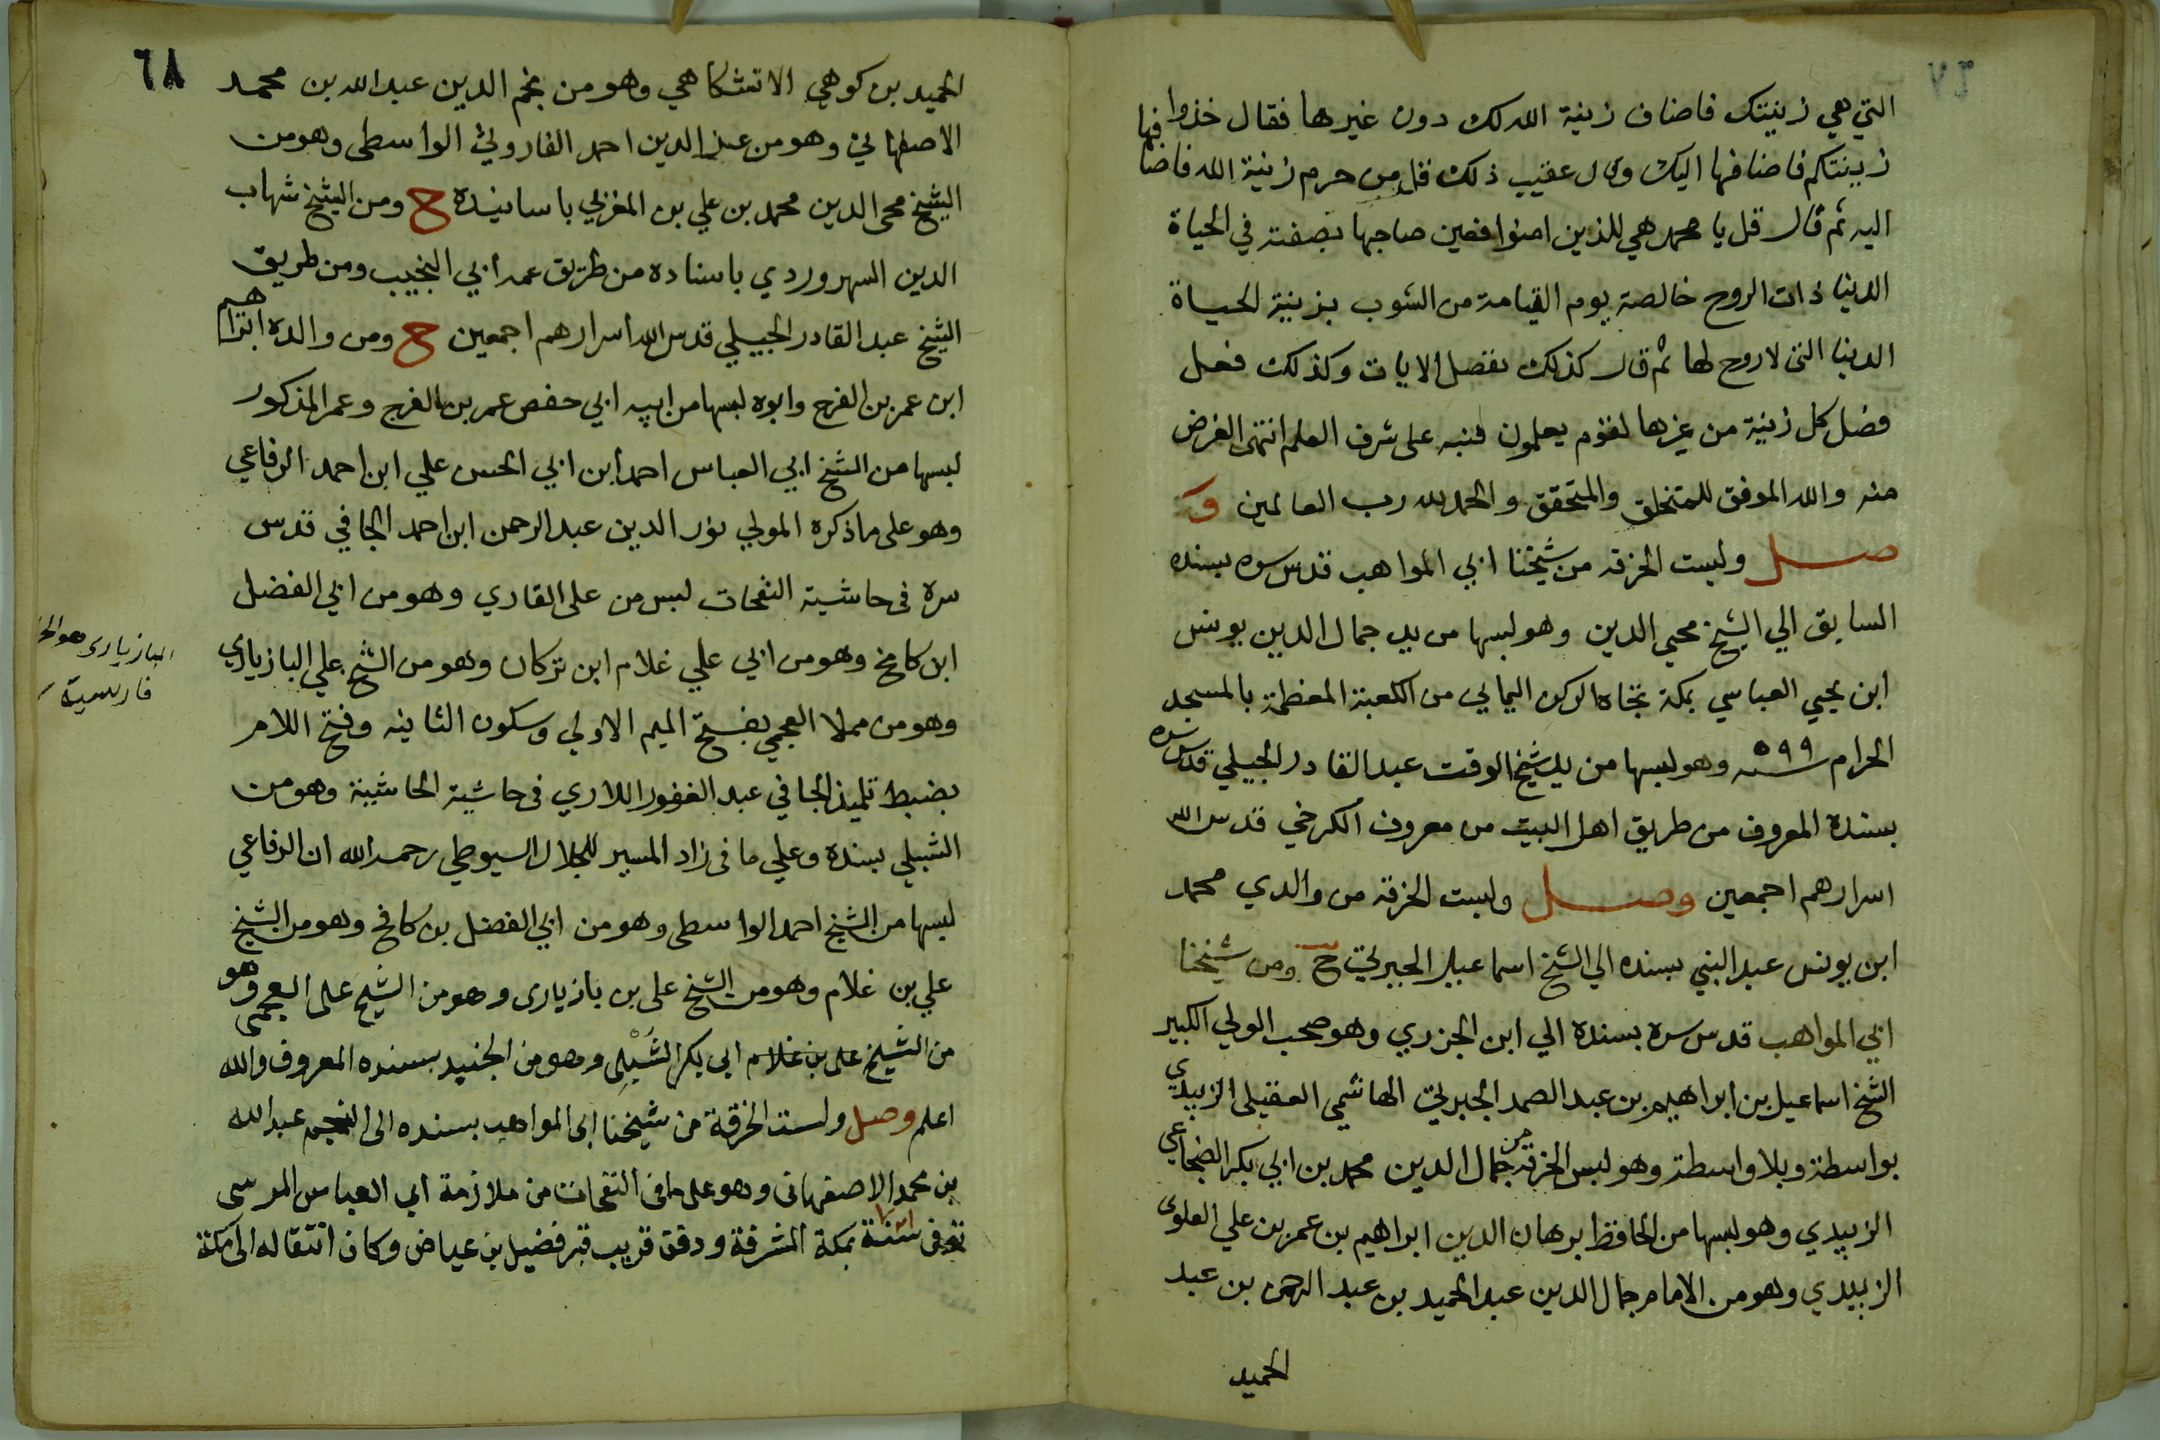 التي هي زينتك فاضاف زينة الله لك دون غيرها فقال خذوا
زينتكم فاضافها اليك وقال عقيب ذلك قل من حرم زينة الله فاضافها
اليه ثم قال قل يا محمد هي للذين امنوا فعين صاحبها بصفته في الحياة
الدنيا ذات الروح خالصة يوم القيامة من الشوب بزينة الحياة
الدنيا التي لا روح لها ثم قال كذلك نفصل الايات وكذلك فعل
فضل كل زينة من غيرها لقوم يعلمون فنبه على شرف العلم انتهى الغرض
منه والله الموفق للمتخلق والمتحقق والحمد لله رب العالمين و
صل ولبست الخرقة من شيخنا ابي المواهب قدس سره بسنده
السابق الي الشيخ محيي الدين وهو لبسها من يد جمال الدين يونس
ابن يحيي العباسي بمكة تجاه الركن اليماني من الكعبة المعظمة بالمسجد
الحرام سنه ٥٩٩ وهو لبسها من يد شيخ الوقت عبد القادر الجيلي قدس سره
بسنده المعروف من طريق اهل البيت من معروف الكرخي قدس الله
اسرارهم اجمعين وصل ولبست الخرقة من والدي محمد
ابن يونس عبد النبي بسنده الي الشيخ اسماعيل الجبرتي ح ومن شيخنا
ابي المواهب قدس سره بسنده الي ابن الجزري وهو صحب الولي الكبير
الشيخ اسماعيل بن ابراهيم بن عبد الصمد الجبرتي الهاشمي العقيلي الزبيدي
بواسطة وبلا واسطة وهو لبس الخرقة من جمال الدين محمد بن ابي بكر الضجاعي
الزبيدي وهو لبسها من الحافظ برهان الدين ابراهيم بن عمر بن علي العلوي
الزبيدي وهو من الامام جمال الدين عبد الحميد بن عبد الرحمن بن عبد
الحميد
٦٨
الحميد بن كوهي الاتشكاهي وهو من نجم الدين عبد الله بن محمد
الاصفهاني وهو من عز الدين احمد الفاروثي الواسطي وهو من
الشيخ محي الدين محمد بن علي بن المغزلي باسانيده ح ومن الشيخ شهاب
الدين السهروردي باسناده من طريق عمه ابي النجيب ومن طريق
الشيخ عبد القادر الجيلي قدس الله اسرارهم اجمعين ح ومن والده ابراهيم
ابن عمر بن الفرج وابوه لبسها من ابيه ابي حفص عمر بن الفرج وعمر المذكور
لبسها من الشيخ ابي العباس احمد ابن ابي الحسن علي ابن احمد الرفاعي
وهو على ما ذكره المولي نور الدين عبد الرحمن ابن احمد الجامي قدس
سره في حاشية النفحات لبس من على القاري وهو من ابي الفضل
ابن كامخ وهو من ابي علي غلام ابن تركان وهو من الشيخ علي البازياري
وهو من مملا العجمي بفتح الميم الاولي وسكون الثانيه وفتح اللام
بضبط تلميذ الجامي عبد الغفور اللاري في حاشية الحاشية وهو من
الشبلي بسنده وعلي ما في زاد المسير للجلال السيوطي رحمه الله ان الرفاعي
لبسها من الشيخ احمد الواسطي وهو من ابي الفضل بن كامخ وهو من الشيخ
علي بن غلام وهو من الشيخ على بن بازيارى وهو من الشيخ على العجمى وهو
من الشيخ على بن غلام ابى بكر الشبلى وهو من الجنيد بسنده المعروف والله
اعلم وصل ولبست الخرقة من شيخنا ابى المواهب بسنده الى النجم عبد الله
بن محمد الاصفهانى وهو على ما فى النفحات من ملازمة ابى العباس المرسى
توفى سنة بمكة المشرفة ودفن قريب قبر فضيل بن عياض وكان انتقاله الى مكة
البازيارى هو
فارسية